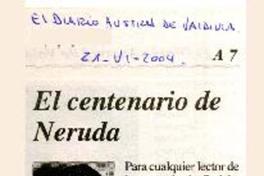 El Diario Austral de Valdivia.
21-VI-2004. A 7
El centenario de
Neruda
Para cualquier lector de